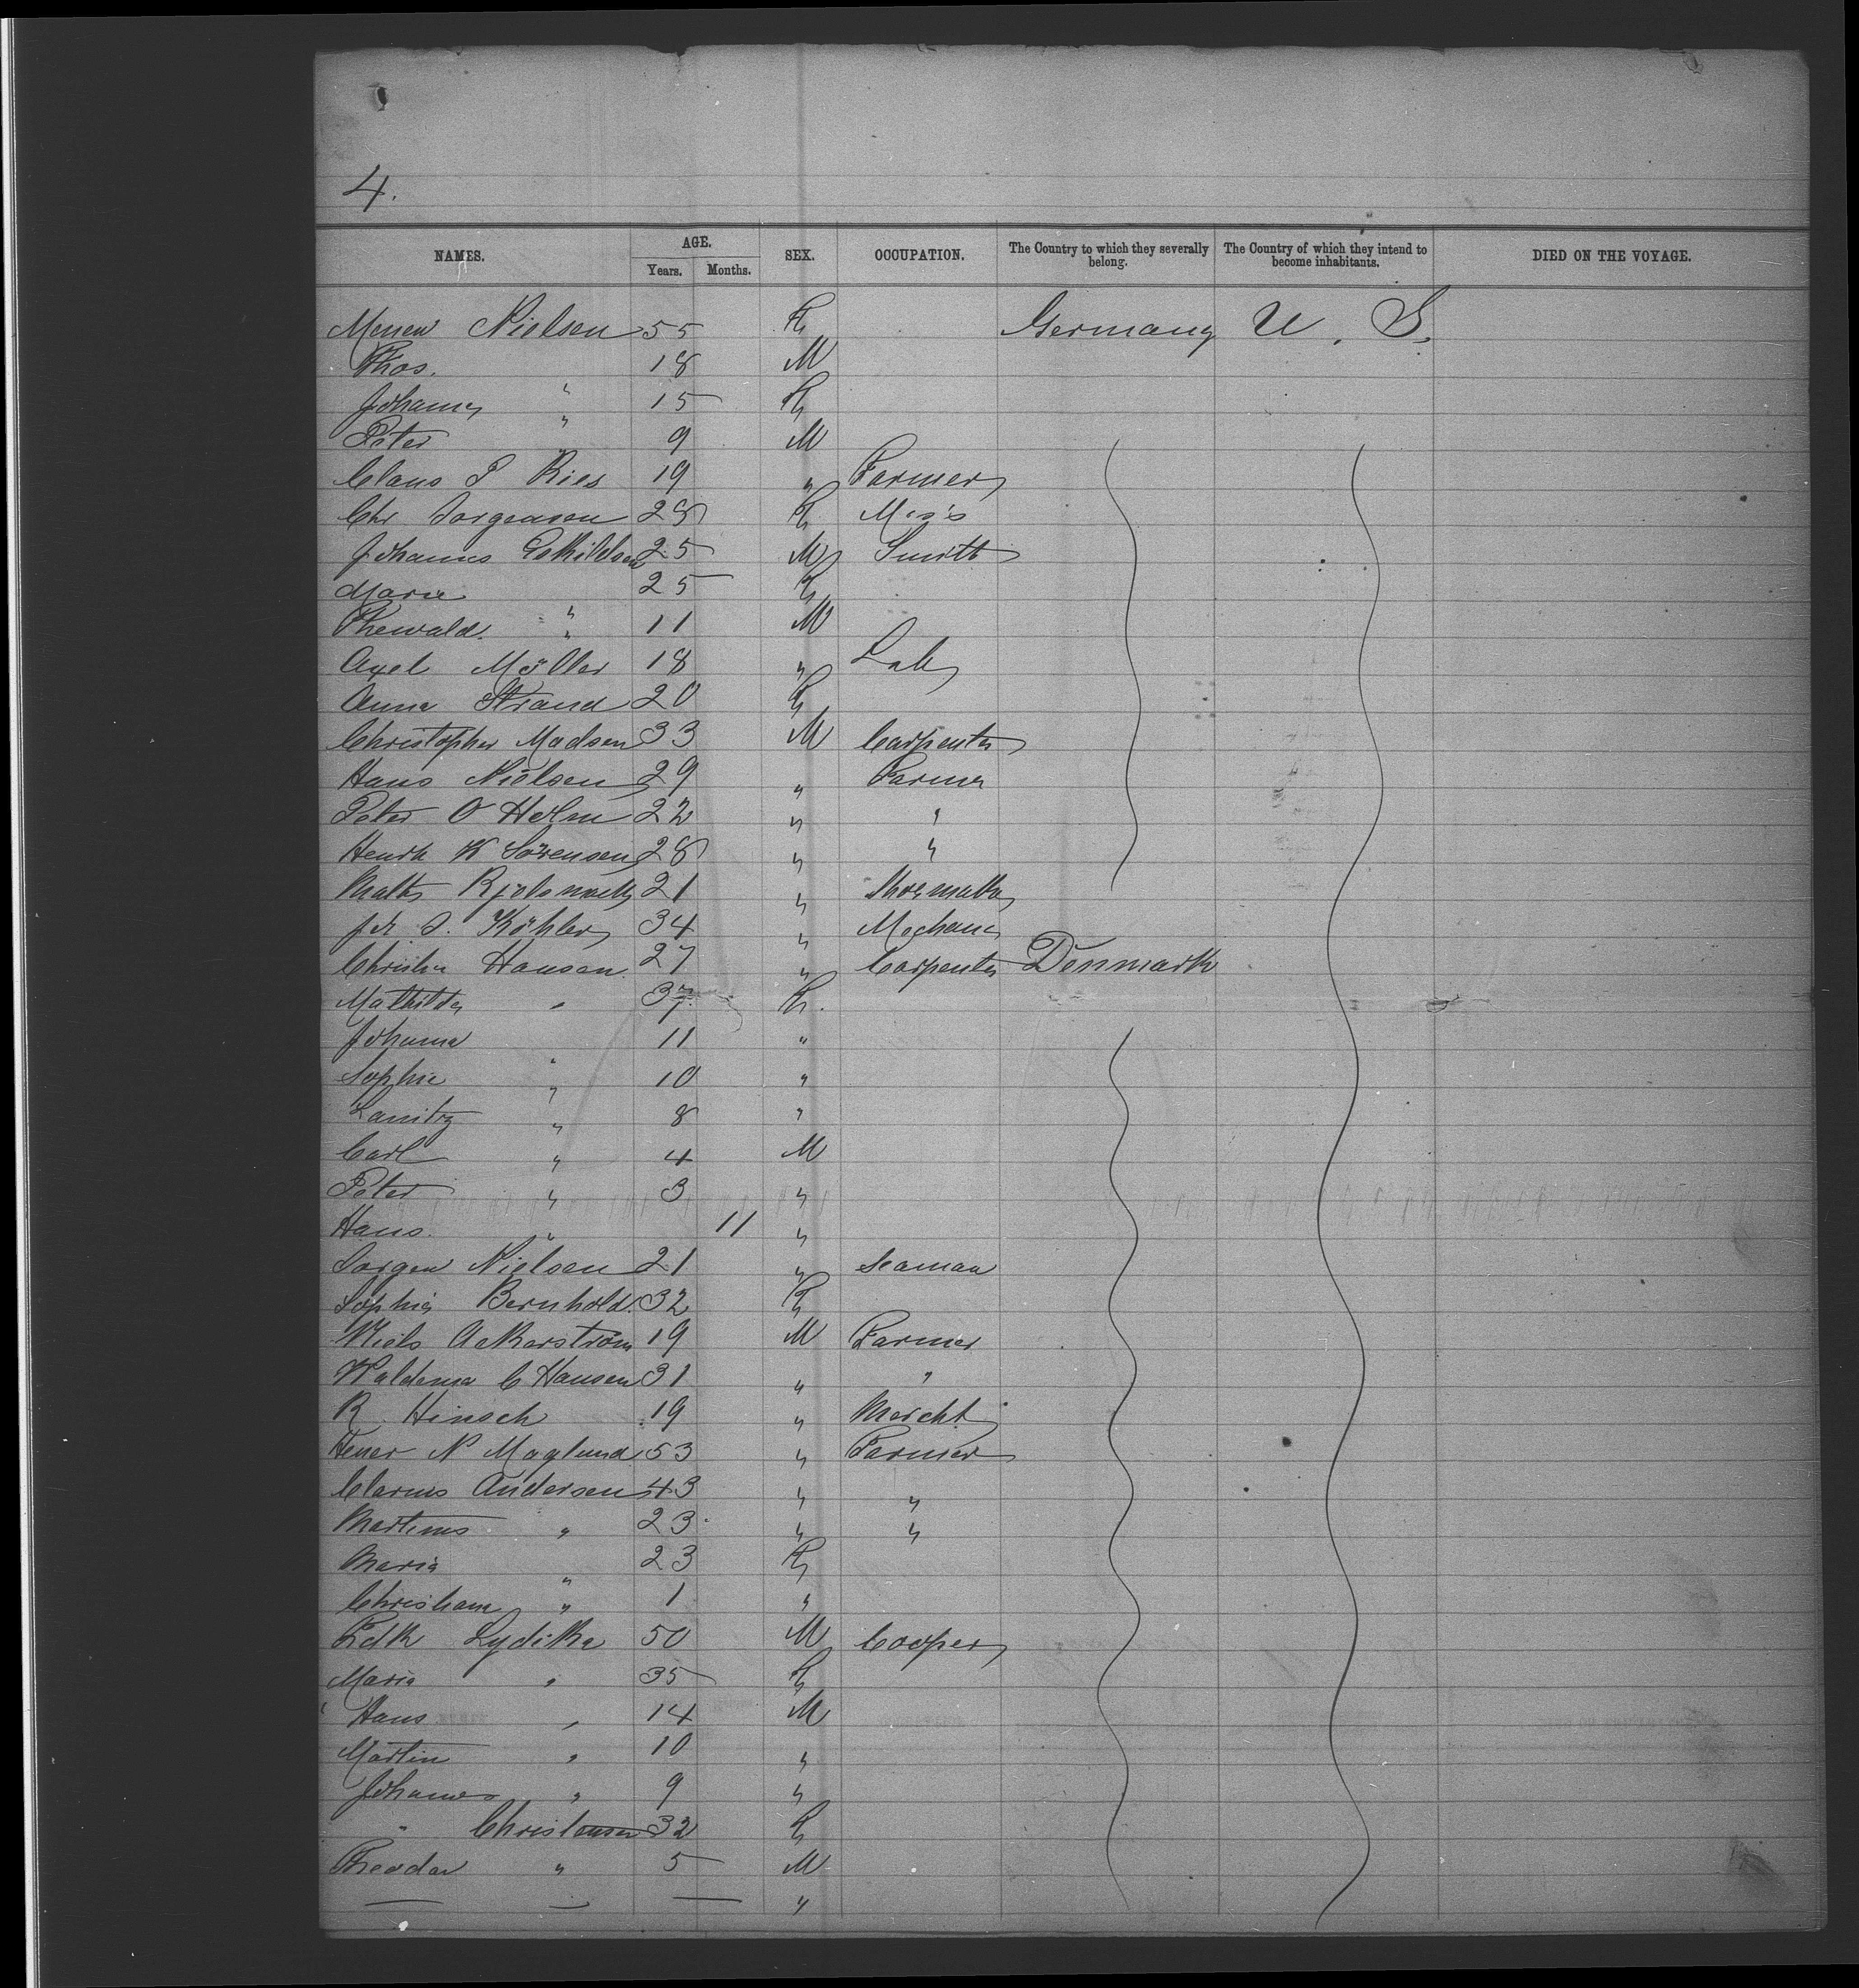 4.
NAMES. AGE. SEX. OCCUPATION. The Country to which they severally belong. The Country of which they intend to become inhabitants. DIED ON THE VOYAGE.
Years. Months.
Nielsen 55 F Germany U. S.
Thos. 18 M
Johanna " 15 F
Peter " 9 M
Claus P Ries 19 " Farmer
Chr Jorgensen 28 F
Johannes Eskildsen 25 M Smith
Marie " 25 F
Thewald " 11 M
Axel Möller 18 " Lab
Anna Strand 20 F
Christopher Madsen 33 M Carpenter
Hans Nielsen 29 " Farmer
Peter O Holm 22 " "
Hendk W Sörensen 28 " "
21 " Shoemaker
Köhler 34 " Mechanic
Christian Hansen 27 " Carpenter Denmark
Mathilda " 37 F.
Johanna " 11 "
Sophie " 10 "
" 8 "
Carl " 4 M
Peter " 3 "
Hans " 11 "
Jorgen Nielsen 21 " Seaman
Sophia Bernhold. 32 F
Niels Ackerstrom 19 M Farmer
Waldema C Hansen 31 " "
R. Hinsch 19 " Mercht
N Maglund 53 " Farmer
Andersen 43 " "
Martinus " 23 " "
Maria " 23 F
Christiana " 1 "
Fdk Lydika 50 M Cooper
Maria " 35 F
Hans " 14 M
Martin " 10 "
Johannes " 9 "
" Christensen 32 F
Theodor " 5 M
— — — "